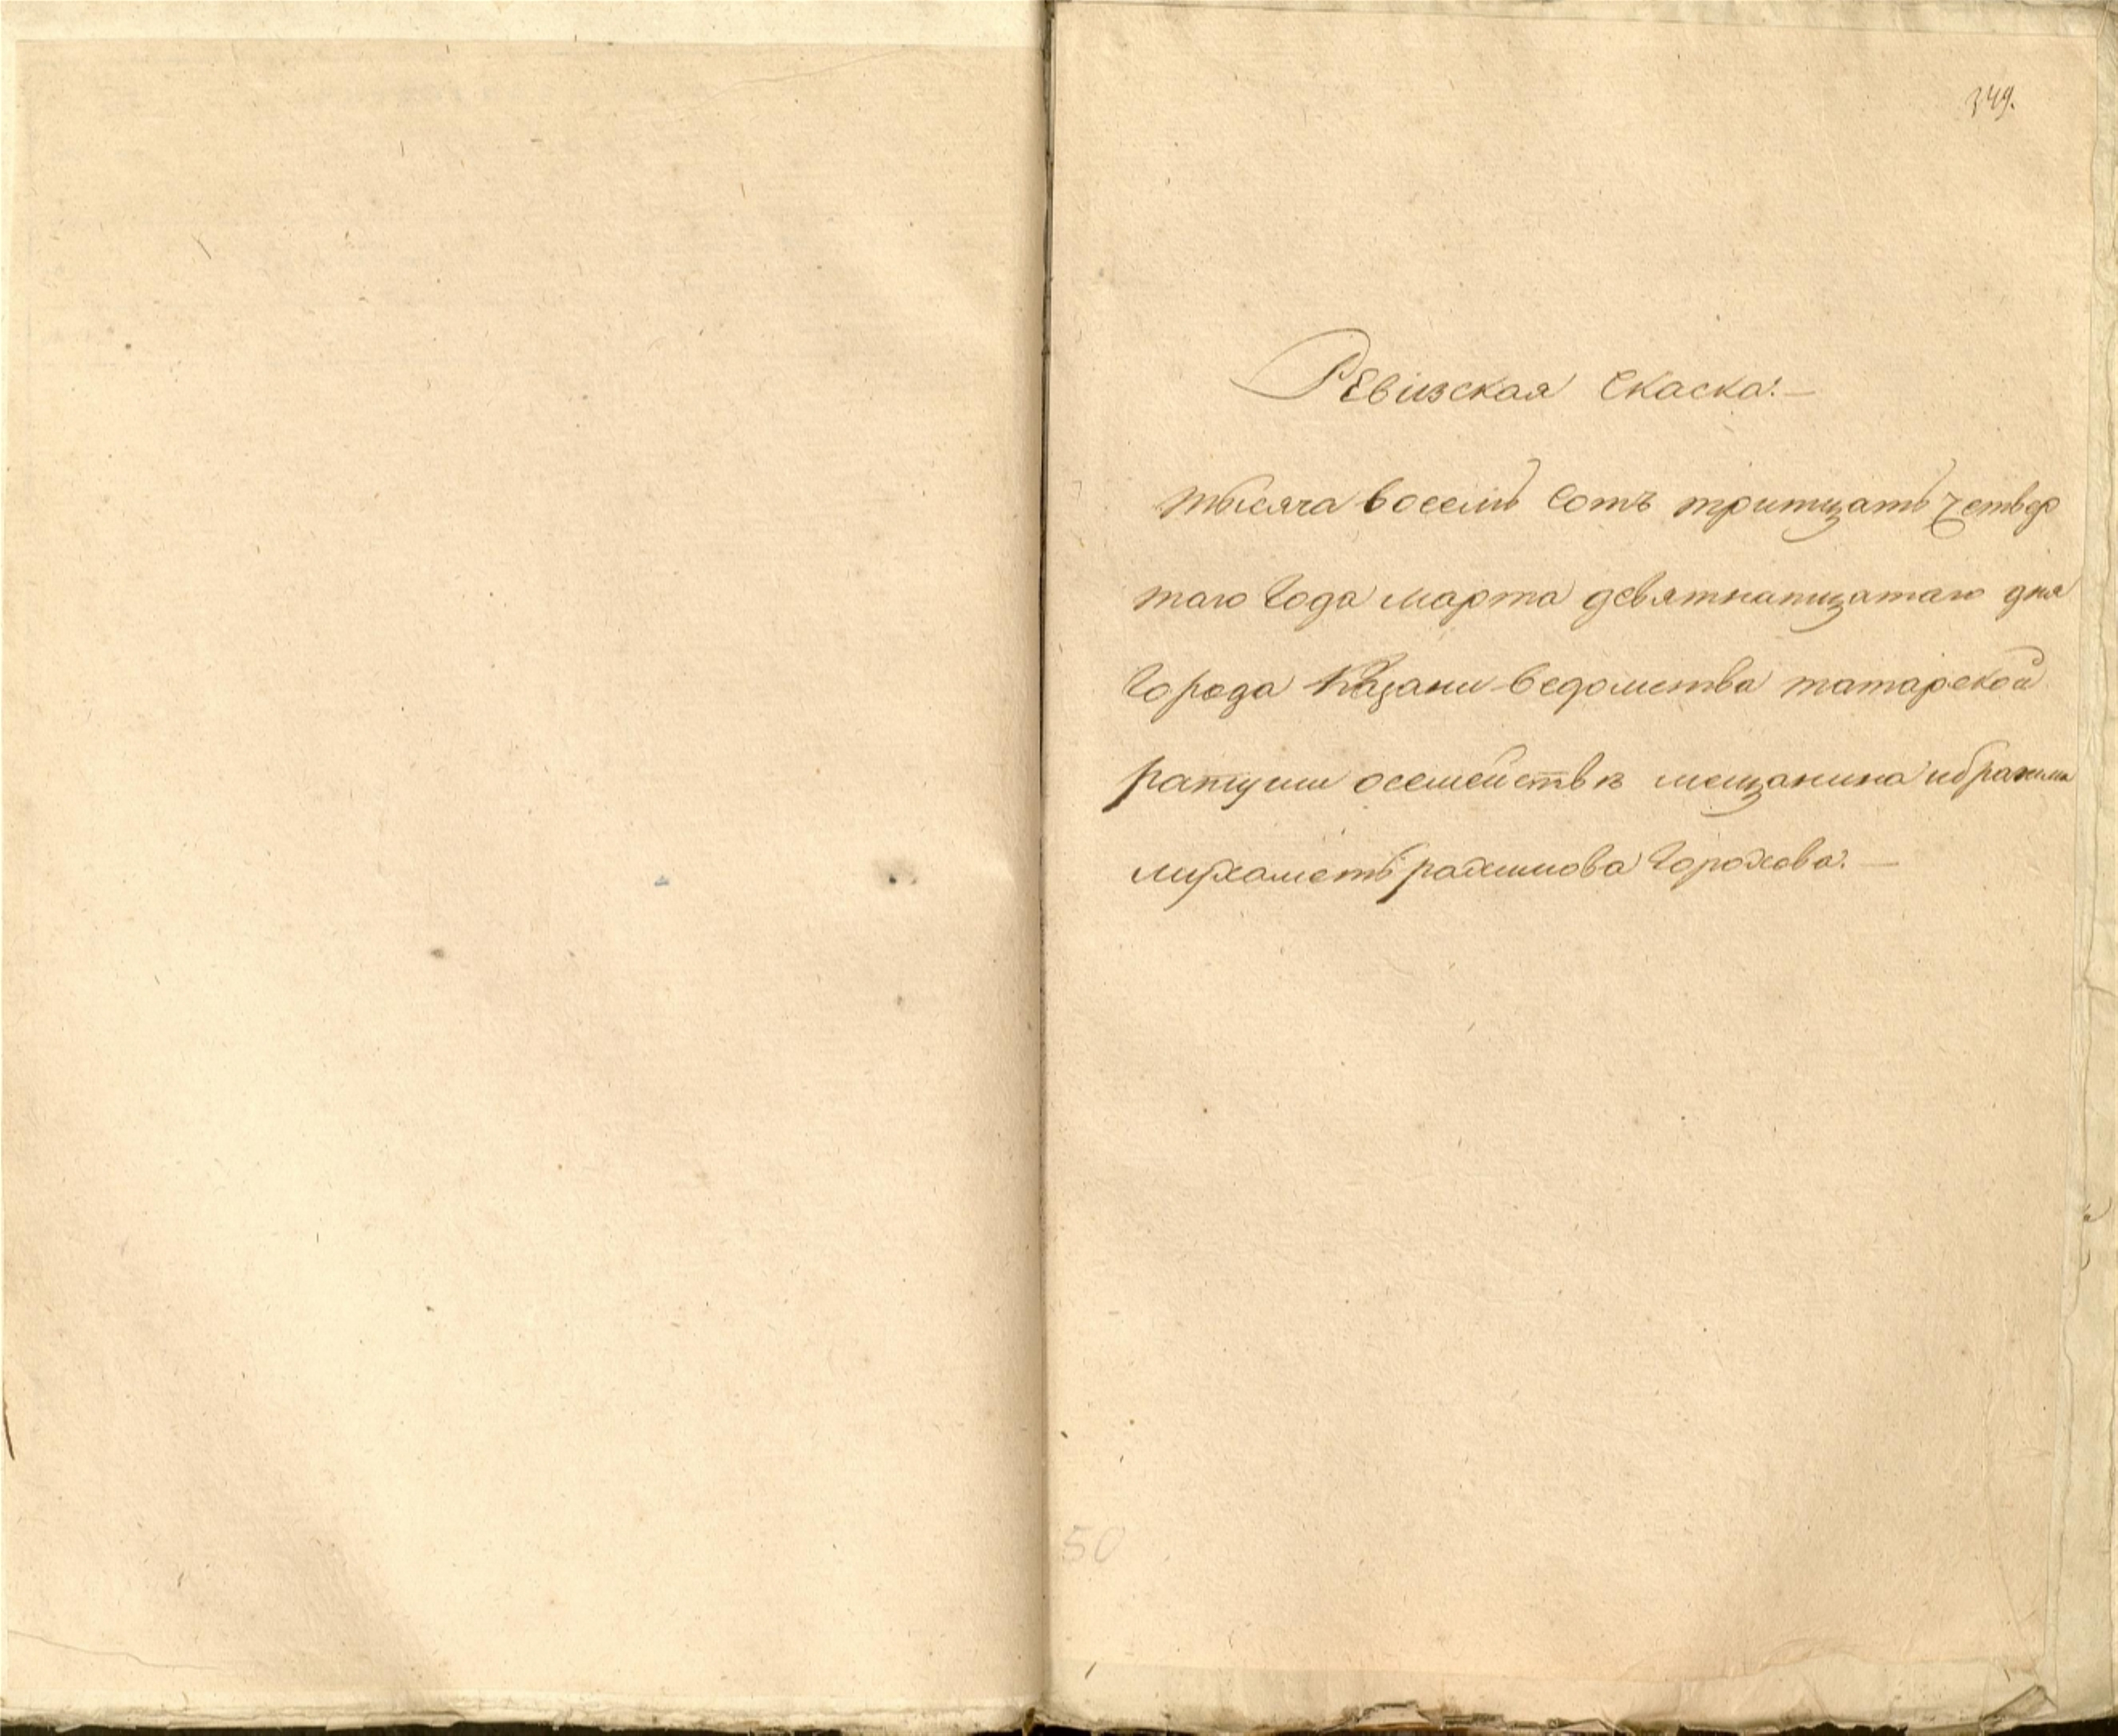 349.
Ревизская Скаска. —
тысяча восемь сотъ тритцать четвер
таго Года марта девятнатцатаго дня
Города Казани ведомства татарской
ратуши осемействѣ мещанина ибрагима
мухаметъ рахимова Горохова. —
50